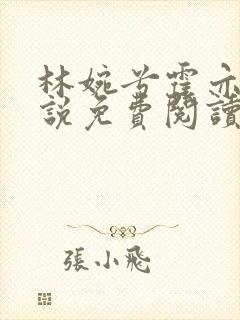 林婉兮霍亦
說免費閱讀
張小飛